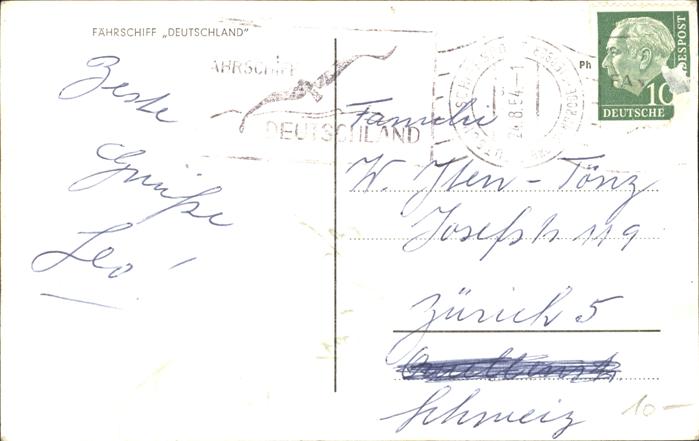 FÄHRSCHIFF „DEUTSCHLAND"
Beste
Grüße
Leo
FÄHRSCHIFF
DEUTSCHLAND
24.8.54-1
Ph
DESPOST
10
DEUTSCHE
Familie
W. Iten-Tönz
Josefstr 119
Zürich 5
Schweiz
10-